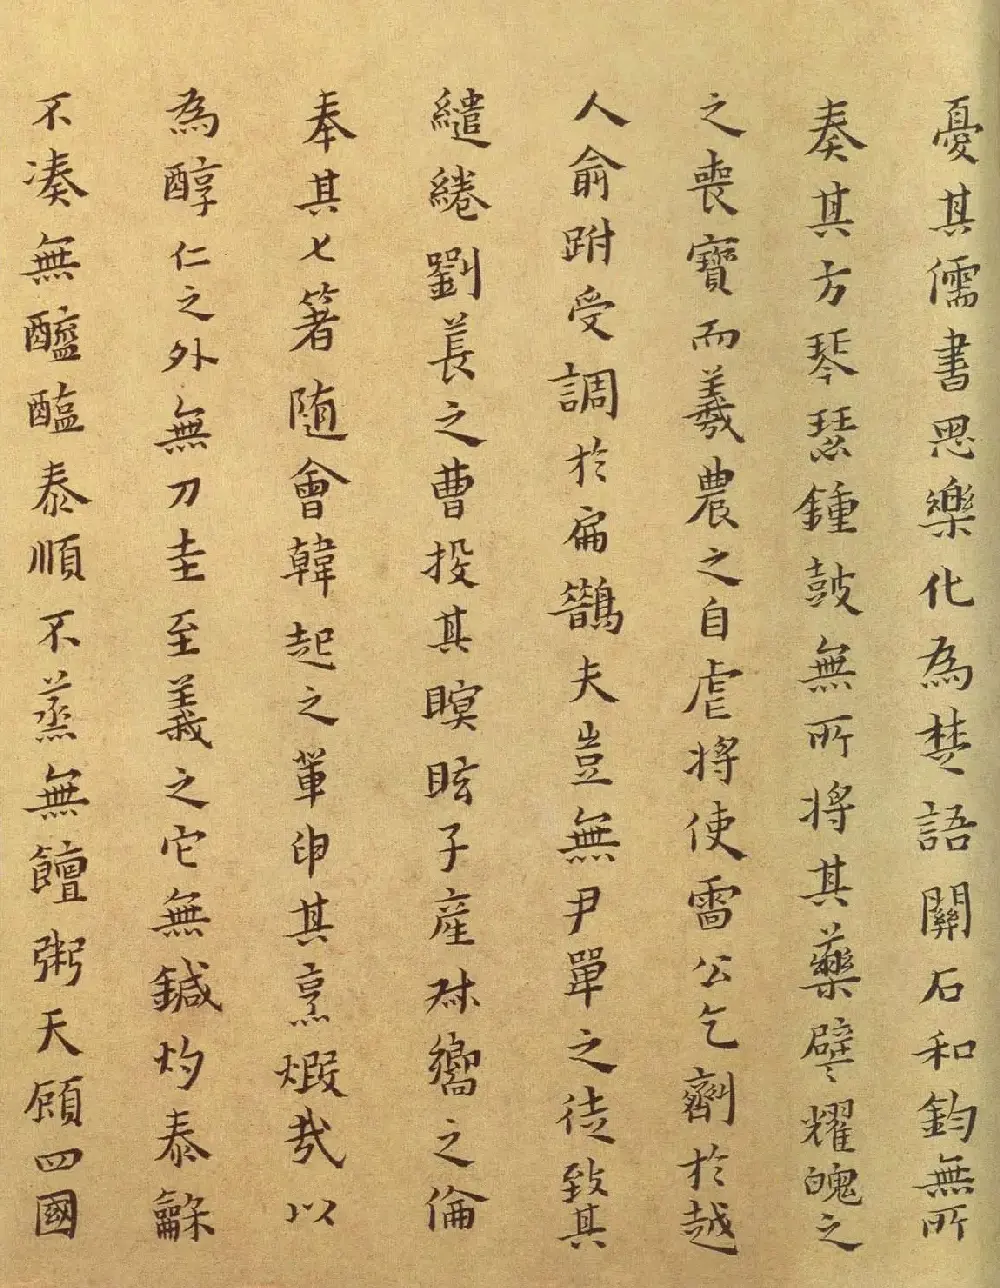 憂其儒書思樂化為楚語關石和鈞無所
奏其方琴瑟鍾鼓無所將其藥譬耀魄之
之喪寶而羲農之自虐將使雷公乞劑於越
人俞跗受調於扁鵲夫豈無尹單之徒致其
繾綣劉萇之曹投其瞑眩子產叔嚮之倫
奉其匕箸随會韓起之軰申其烹煆哉以
為醇仁之外無刀圭至義之它無鍼灼泰龢
不凑無醯醢泰順不蒸無饘粥天顧四國